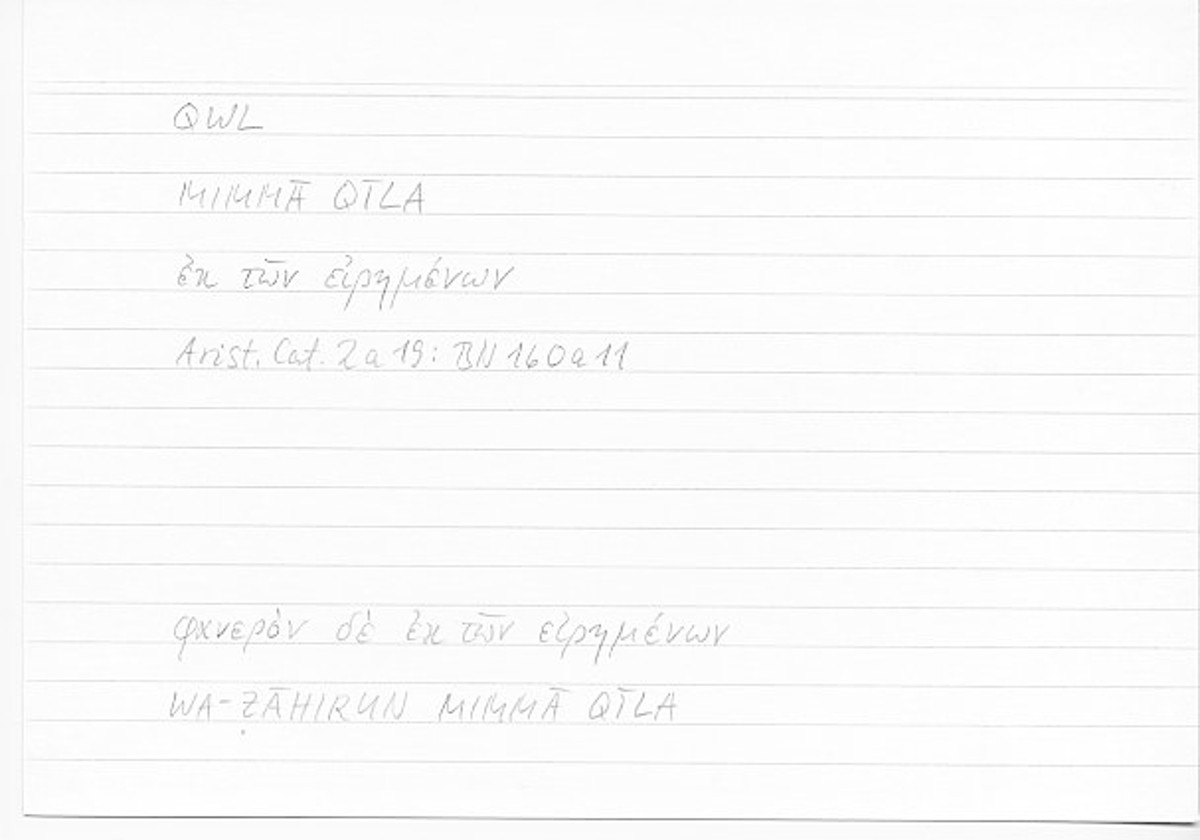 QWL
MIMMĀ QĪLA
ἐκ τῶν εἰρημένων
Arist. Cat. 2a19: BN 160a11
φανερὸν δὲ ἐκ τῶν εἰρημένων
WA-ẒĀHIRUN MIMMĀ QĪLA